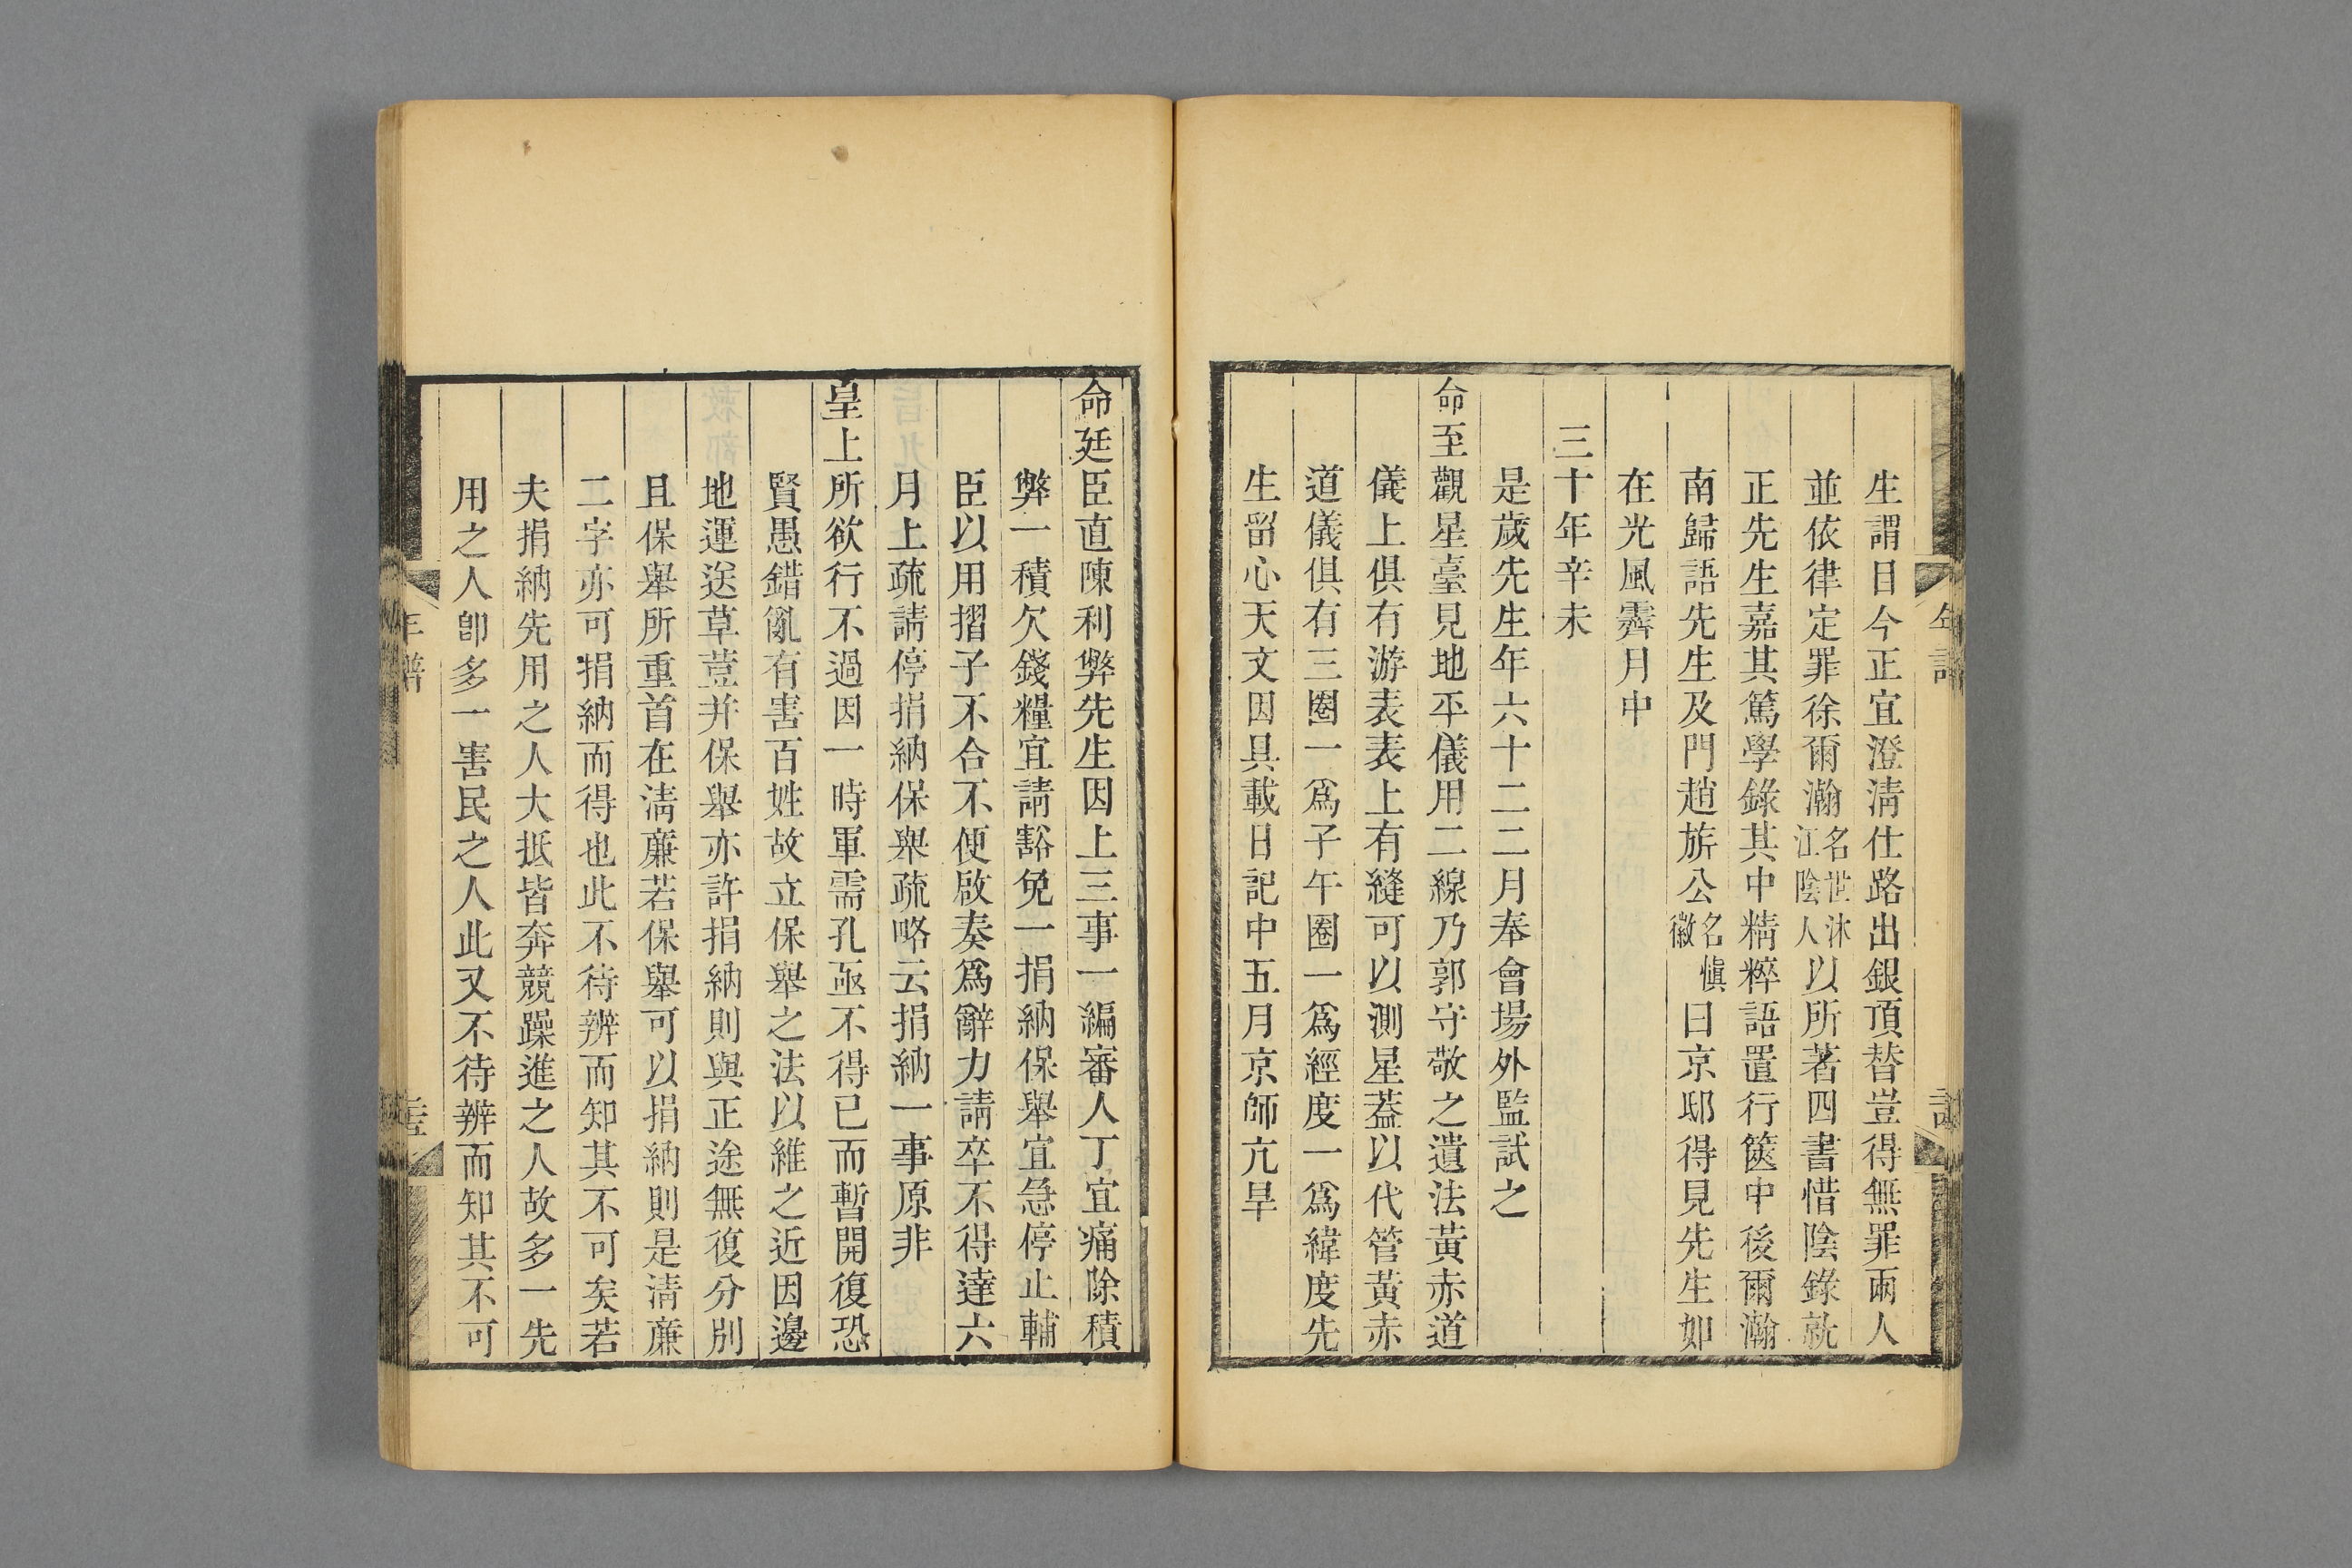 生謂日今正宜澄清仕路出銀頂替豈得無罪兩人
並依律定罪徐爾瀚名世沐江陰人以所著四書惜陰錄就
正先生嘉其篤學錄其中精粹語置行篋中後爾瀚
南歸語先生及門趙旂公名慎徽曰京邸得見先生如
在光風霽月中
三十年辛未
是歲先生年六十二二月奉會場外監試之
命至觀星臺見地平儀用二線乃郭守敬之遺法黃赤道
儀上俱有游表表上有縫可以測星蓋以代管黃赤
道儀俱有三圈一爲子午圈一爲經度一爲緯度先
生留心天文因具載日記中五月京師亢旱
命廷臣直陳利弊先生因上三事一編審人丁宜痛除積
弊一積欠錢糧宜請豁免一捐納保舉宜急停止輔
臣以用摺子不合不便啟奏爲辭力請卒不得達六
月上疏請停捐納保舉疏略云捐納一事原非
皇上所欲行不過因一時軍需孔亟不得已而暫開復恐
賢愚錯亂有害百姓故立保舉之法以維之近因邊
地運送草荳并保舉亦許捐納則與正途無復分別
且保舉所重首在清廉若保舉可以捐納則是清廉
二字亦可捐納而得也此不待辨而知其不可矣若
夫捐納先用之人大抵皆奔競躁進之人故多一先
用之人卽多一害民之人此又不待辨而知其不可
年譜